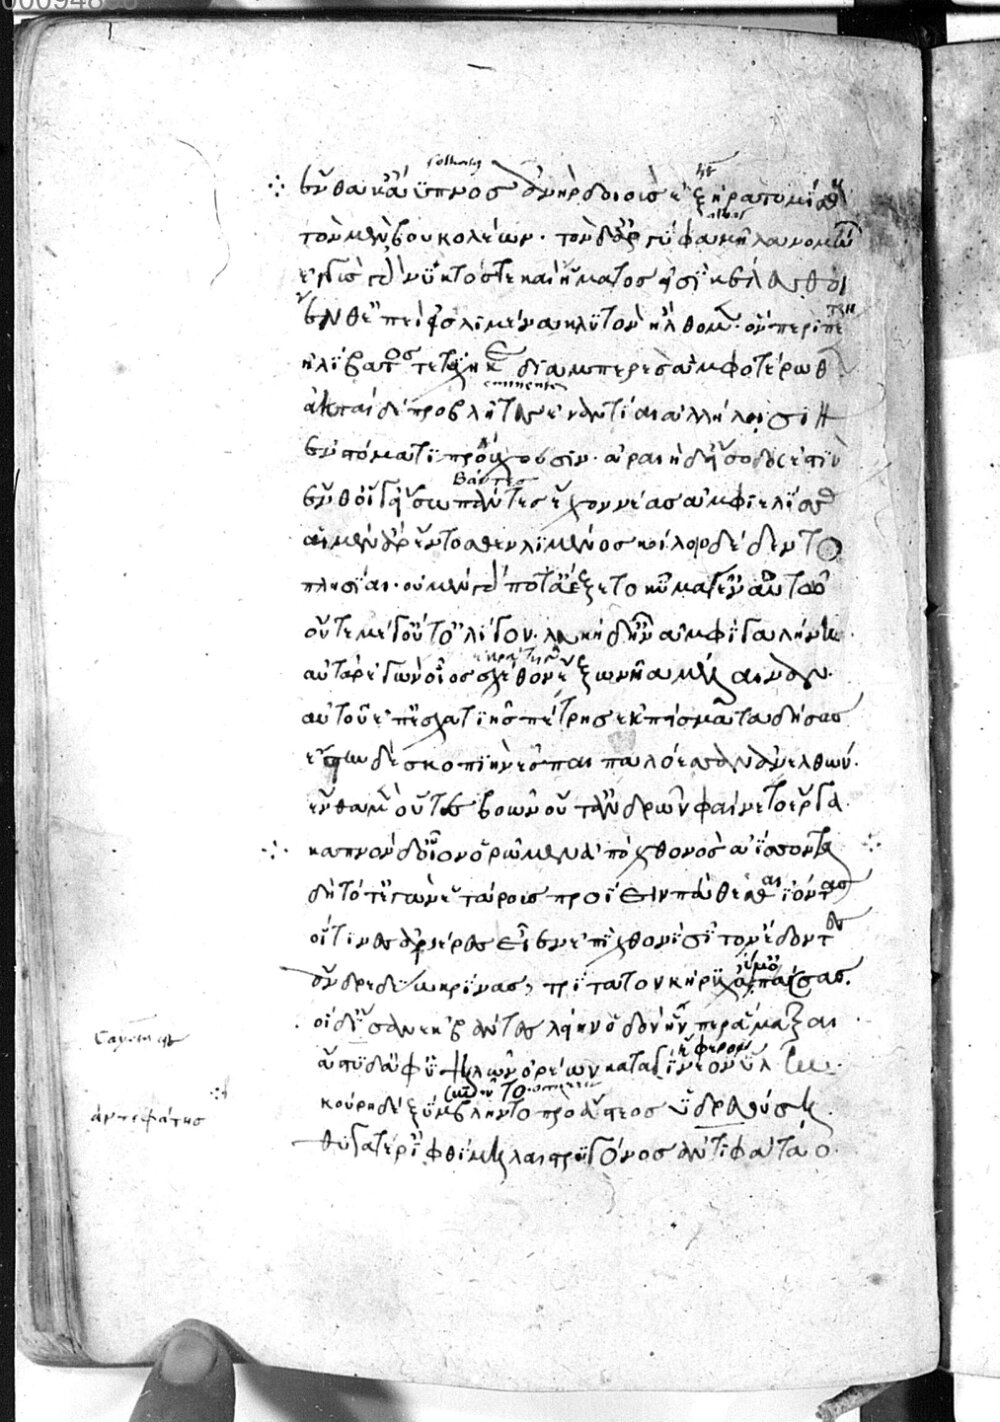 ἔνθα κ' ἄϋπνος ἀνὴρ δοιοὺς ἐξήρατο μισθοὺς
τὸν μὲν βουκολέων· τὸν δ' ἄργυφα μῆλα νομεύων
ἐγγὺς γὰρ νυκτός τε καὶ ἤματος εἰσὶ κέλευθοι
ἔνθ' ἐπεὶ ἐς λιμένα κλυτὸν ἤλθομεν· ὃν περὶ πέτρη
ἠλίβατος τετύχηκε διαμπερὲς ἀμφοτέρωθεν
ἀκταὶ δὲ προβλῆτες ἐναντίαι ἀλλήλοισιν
ἐν στόματι προὔχουσιν· ἀραιὴ δ' εἴσοδός ἐστιν
ἔνθ' οἵ γ' εἴσω πάντες ἔχον νέας ἀμφιελίσσας
αἱ μὲν ἄρ' ἔντοσθεν λιμένος κοίλοιο δέδεντο
πλησίαι· οὐ μὲν γάρ ποτ' ἀέξετο κῦμά γ' ἐν αὐτῷ
οὔτε μέγ' οὔτ' ὀλίγον· λευκὴ δ' ἦν ἀμφὶ γαλήνη·
αὐτὰρ ἐγὼν οἶος σχέθον ἔξω νῆα μέλαιναν·
αὐτοῦ ἐπ' ἐσχατιῇ πέτρης ἐκ πείσματα δήσας
ἔστην δὲ σκοπιὴν ἐς παιπαλόεσσαν ἀνελθών·
ἔνθα μὲν οὔτε βοῶν οὔτ' ἀνδρῶν φαίνετο ἔργα·
καπνὸν δ' οἶον ὁρῶμεν ἀπὸ χθονὸς ἀΐσσοντα
δὴ τότ' ἐγὼν ἑτάρους προΐειν πεύθεσθαι ἰόντας
οἵτινες ἀνέρες εἶεν ἐπὶ χθονὶ σῖτον ἔδοντες
ἄνδρε δύω κρίνας, τρίτατον κήρυχ' ἅμ' ὀπάσσας.
οἱ δ' ἴσαν ἐκβάντες λείην ὁδόν ᾗπερ ἄμαξαι
ἄστυδ' ἀφ' ὑψηλῶν ὀρέων καταγίνεον ὕλην·
κούρῃ δὲ ξύμβληντο πρὸ ἄστεος ὑδρευούσῃ
θυγατέρ' ἰφθίμῃ λαιστρυγόνος ἀντιφάταο·
ἀντιφάτης